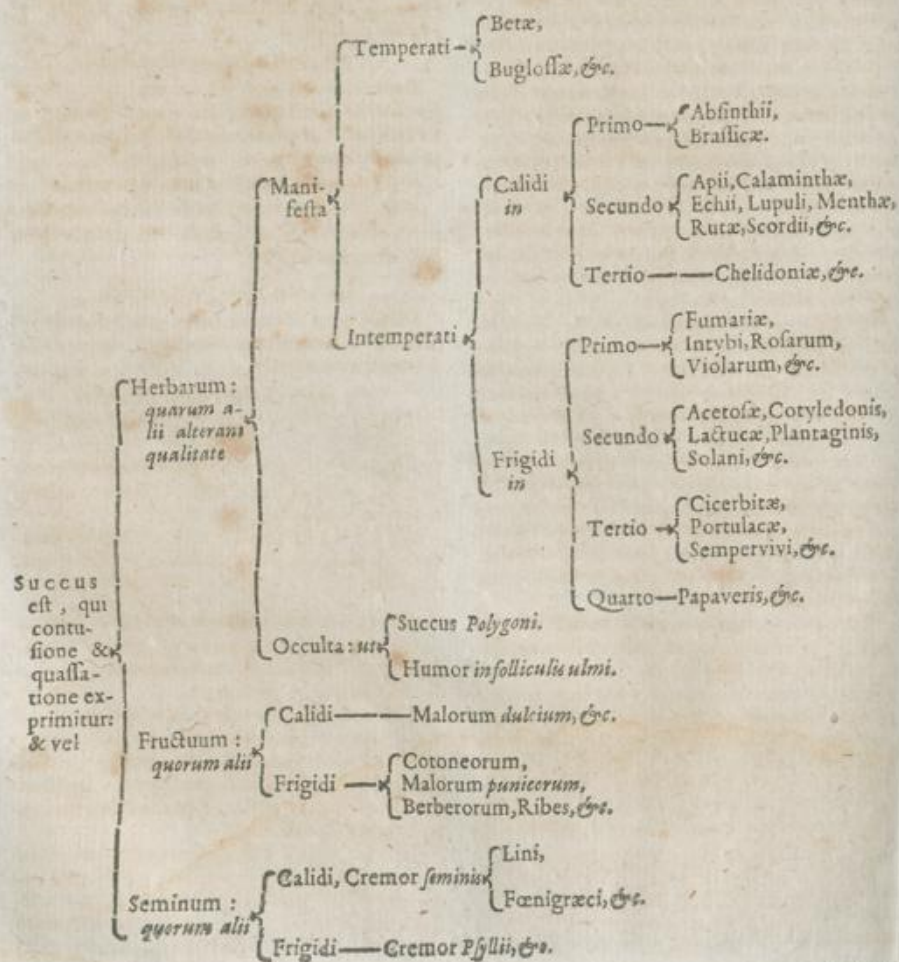 Succus
est, qui
contu-
sione &
quassa-
tione ex-
primitur:
& vel
Herbarum:
quarum a-
lii alterant
qualitate
Mani-
festa
Temperati
Betæ,
Buglossæ, &c.
Intemperati
Calidi
in
Primo
Absinthii,
Brassicæ.
Secundo
Apii, Calaminthæ,
Echii, Lupuli, Menthæ,
Rutæ, Scordii, &c.
Tertio
Chelidoniæ, &c.
Frigidi
in
Primo
Fumariæ,
Intybi, Rosarum,
Violarum, &c.
Secundo
Acetosæ, Cotyledonis,
Lactucæ, Plantaginis,
Solani, &c.
Tertio
Cicerbitæ,
Portulacæ,
Sempervivi, &c.
Quarto
Papaveris, &c.
Occulta: ut
Succus Polygoni.
Humor in folliculis ulmi.
Fructuum:
quorum alii
Calidi
Malorum dulcium, &c.
Frigidi
Cotoneorum,
Malorum punicorum,
Berberorum, Ribes, &c.
Seminum:
quorum alii
Calidi, Cremor seminis
Lini,
Fœnigræci, &c.
Frigidi
Cremor Psyllii, &c.